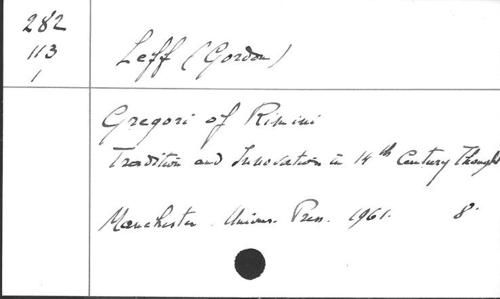 282
113
1
Leff (Gordon)
Gregori of Rimini
Tradition and Innovation in 14th Century Thought
Manchester. Univers. Press. 1961. 8.